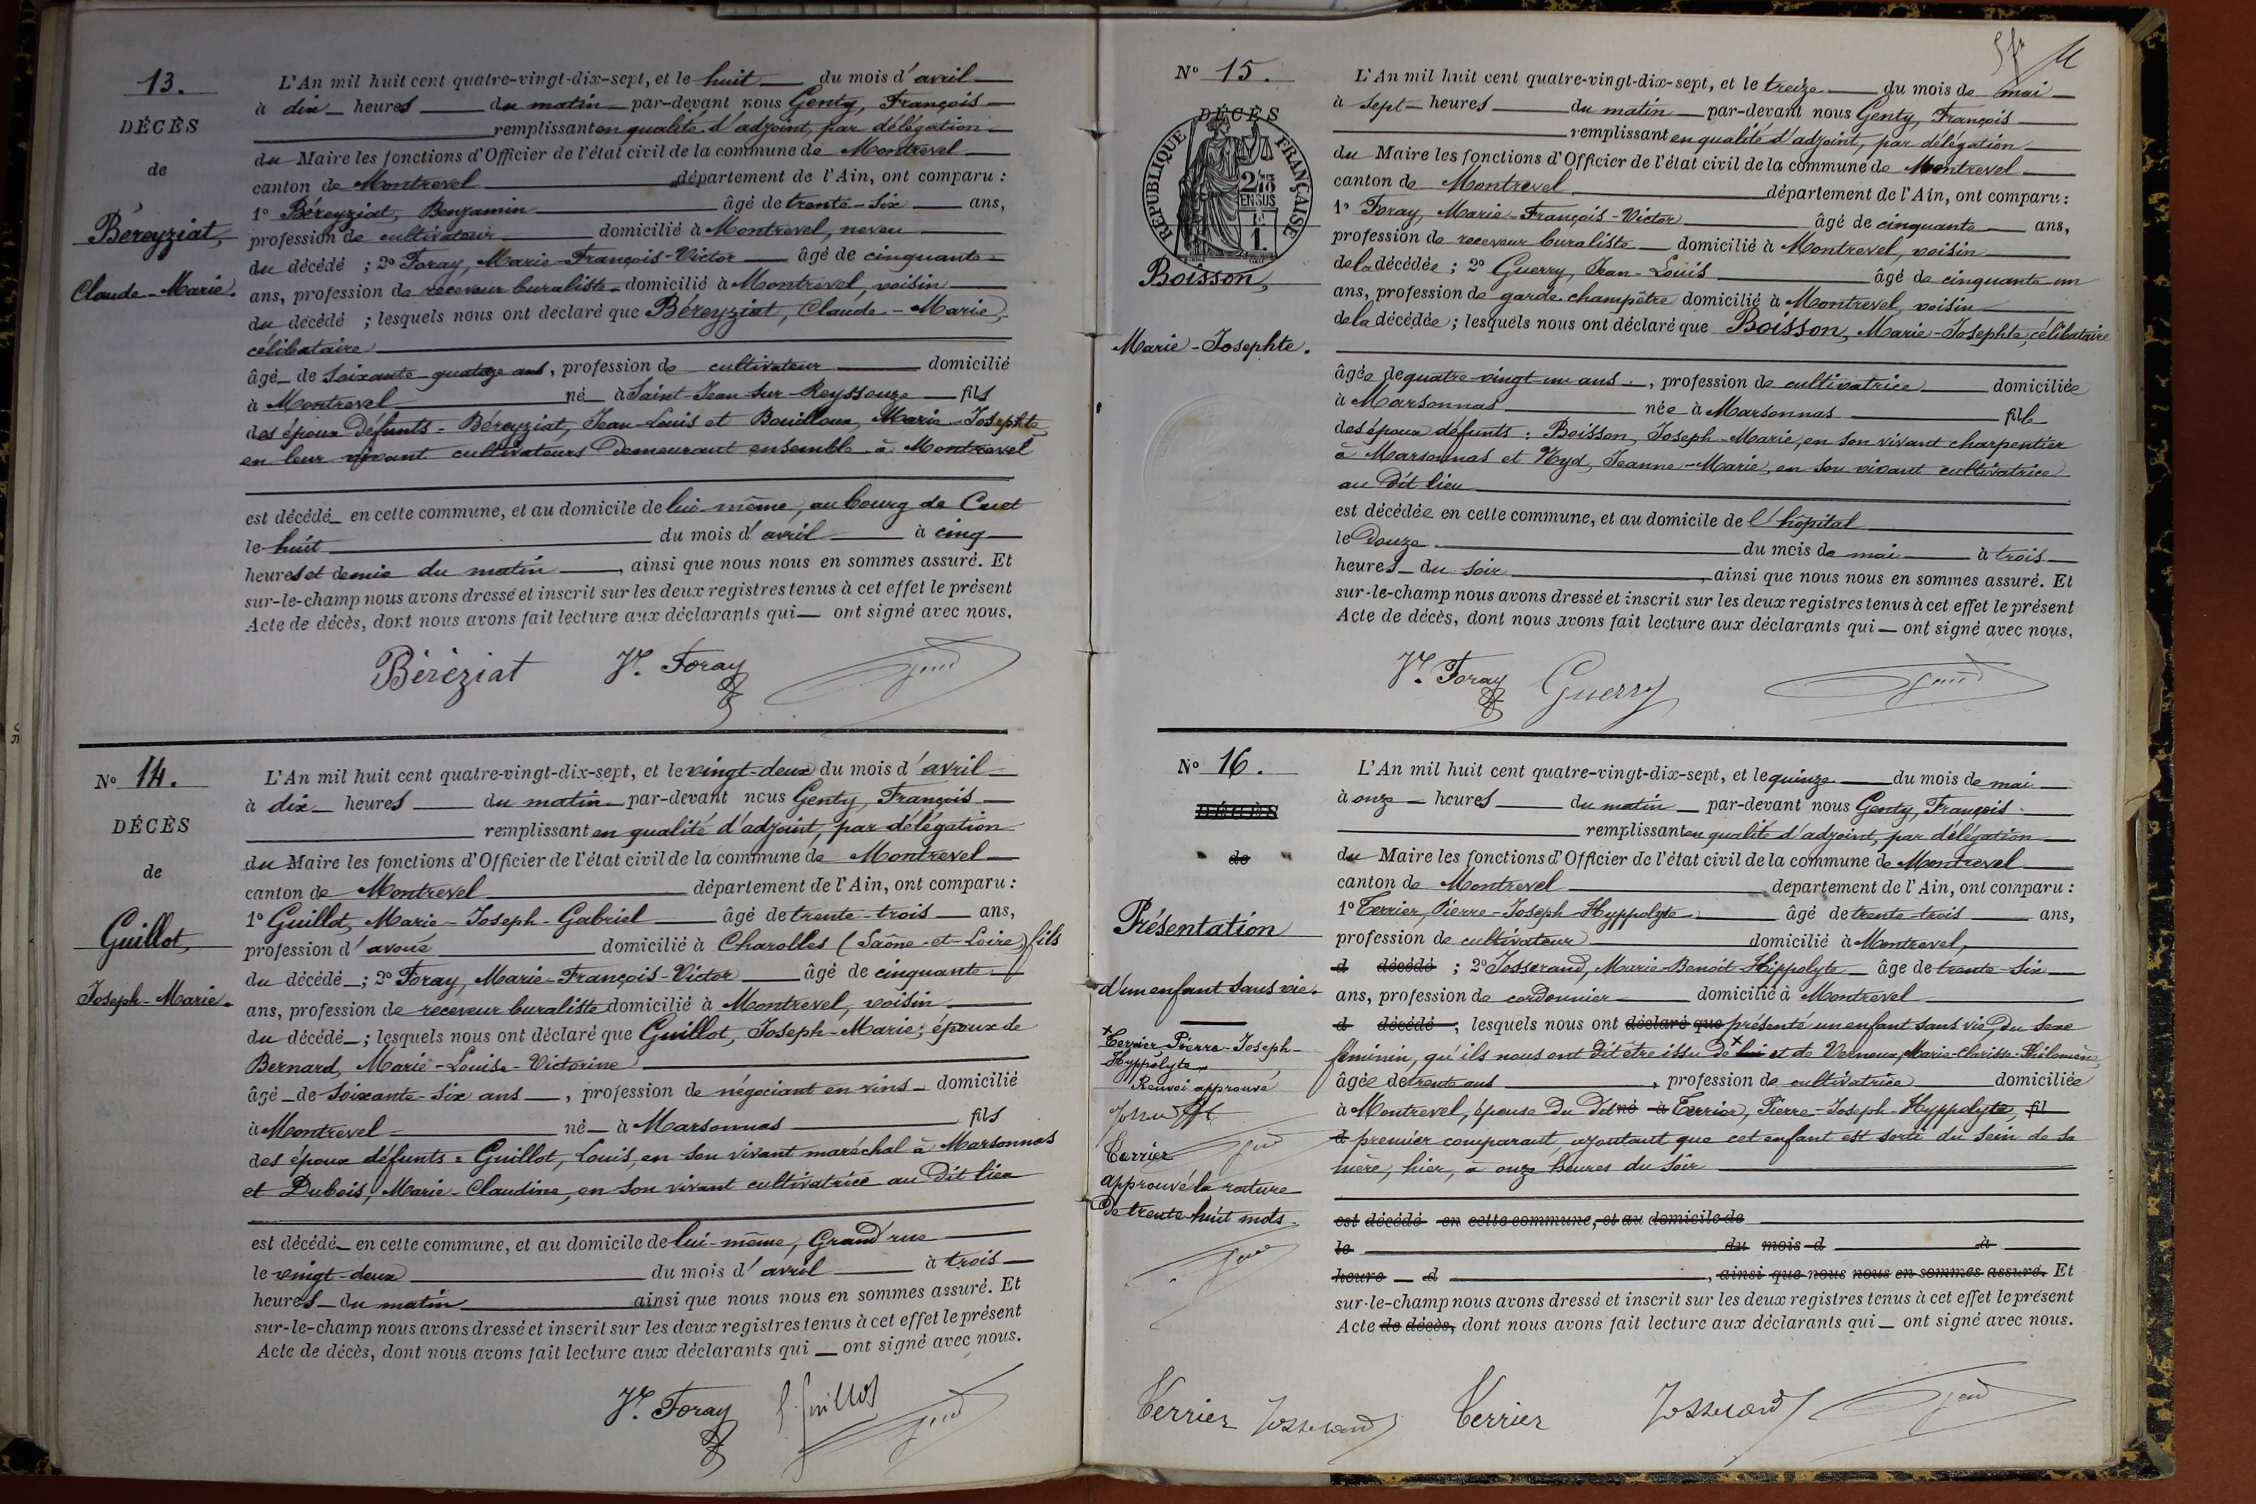 13.
DÉCÈS
de
Béreyziat,
Claude-Marie.
L'An mil huit cent quatre-vingt-dix-sept, et le huit du mois d'avril
à dix heures du matin par-devant nous Genty, François
remplissant en qualité d'adjoint, par délégation
du Maire les fonctions d'Officier de l'état civil de la commune de Montrevel
canton de Montrevel département de l'Ain, ont comparu :
1° Béreyziat, Benjamin âgé de trente-six ans,
profession de cultivateur domicilié à Montrevel, neveu
du décédé ; 2° Foray, Marie-François-Victor âgé de cinquante
ans, profession de receveur buraliste domicilié à Montrevel, voisin
du décédé ; lesquels nous ont déclaré que Béreyziat, Claude-Marie,
célibataire
âgé de soixante quatorze ans, profession de cultivateur domicilié
à Montrevel né à Saint-Jean-sur-Reyssouze fils
des époux défunts = Béreyziat, Jean-Louis et Bouilloux, Marie-Josephte
en leur vivant cultivateurs demeurant ensemble à Montrevel
est décédé en cette commune, et au domicile de lui-même, au bourg de Cuet
le huit du mois d'avril à cinq
heures et demie du matin, ainsi que nous nous en sommes assuré. Et
sur-le-champ nous avons dressé et inscrit sur les deux registres tenus à cet effet le présent
Acte de décès, dont nous avons fait lecture aux déclarants qui ont signé avec nous.
Béréziat Vr. Foray
N° 14.
DÉCÈS
de
Guillot,
Joseph-Marie.
L'An mil huit cent quatre-vingt-dix-sept, et le vingt-deux du mois d'avril
à dix heures du matin par-devant nous Genty, François
remplissant en qualité d'adjoint, par délégation
du Maire les fonctions d'Officier de l'état civil de la commune de Montrevel
canton de Montrevel département de l'Ain, ont comparu :
1° Guillot, Marie-Joseph-Gabriel âgé de trente-trois ans,
profession d'avoué domicilié à Charolles (Saône-et-Loire) fils
du décédé ; 2° Foray, Marie-François-Victor âgé de cinquante
ans, profession de receveur buraliste domicilié à Montrevel, voisin
du décédé ; lesquels nous ont déclaré que Guillot, Joseph-Marie, époux de
Bernard, Marie-Louise-Victorine
âgé de soixante-six ans, profession de négociant en vins domicilié
à Montrevel né à Marsonnas fils
des époux défunts = Guillot, Louis, en son vivant maréchal à Marsonnas
et Dubois, Marie-Claudine, en son vivant cultivatrice au dit lieu
est décédé en cette commune, et au domicile de lui-même, Grand'rue
le vingt-deux du mois d'avril à trois
heures du matin ainsi que nous nous en sommes assuré. Et
sur-le-champ nous avons dressé et inscrit sur les deux registres tenus à cet effet le présent
Acte de décès, dont nous avons fait lecture aux déclarants qui ont signé avec nous.
Vr. Foray G. Guillot
N° 15.
DÉCÈS
RÉPUBLIQUE FRANÇAISE
Boisson,
Marie-Josephte.
L'An mil huit cent quatre-vingt-dix-sept, et le treize du mois de mai
à sept heures du matin par-devant nous Genty, François
remplissant en qualité d'adjoint, par délégation
du Maire les fonctions d'Officier de l'état civil de la commune de Montrevel
canton de Montrevel département de l'Ain, ont comparu :
1° Foray, Marie-François-Victor âgé de cinquante ans,
profession de receveur buraliste domicilié à Montrevel, voisin
de la décédée ; 2° Guerry, Jean-Louis âgé de cinquante un
ans, profession de garde champêtre domicilié à Montrevel, voisin
de la décédée ; lesquels nous ont déclaré que Boisson, Marie-Josephte, célibataire
âgée de quatre-vingt-un ans, profession de cultivatrice domiciliée
à Marsonnas née à Marsonnas fille
des époux défunts : Boisson, Joseph-Marie, en son vivant charpentier
à Marsonnas et Nyd, Jeanne-Marie, en son vivant cultivatrice
au dit lieu
est décédée en cette commune, et au domicile de l'hôpital
le douze du mois de mai à trois
heures du soir, ainsi que nous nous en sommes assuré. Et
sur-le-champ nous avons dressé et inscrit sur les deux registres tenus à cet effet le présent
Acte de décès, dont nous avons fait lecture aux déclarants qui ont signé avec nous.
Vr. Foray Guerry
N° 16.
DÉCÈS
de
Présentation
d'un enfant sans vie.
x Terrier Pierre-Joseph-
Hyppolyte
Renvoi approuvé
Terrier
approuvé la rature
de trente-huit mots.
L'An mil huit cent quatre-vingt-dix-sept, et le quinze du mois de mai
à onze heures du matin par-devant nous Genty, François
remplissant en qualité d'adjoint, par délégation
du Maire les fonctions d'Officier de l'état civil de la commune de Montrevel
canton de Montrevel département de l'Ain, ont comparu :
1° Terrier, Pierre-Joseph-Hyppolyte âgé de trente-trois ans,
profession de cultivateur domicilié à Montrevel,
d décédé ; 2° Josserand, Marie-Benoit-Hippolyte âgé de trente-six
ans, profession de cordonnier domicilié à Montrevel
d décédé ; lesquels nous ont déclaré que présenté un enfant sans vie, du sexe
féminin, qu'ils nous ont dit être issu de x lui et de Verneux, Marie-Philomène
âgée de trente ans, profession de cultivatrice domiciliée
à Montrevel, épouse du dit né à Terrier, Pierre-Joseph-Hyppolyte, fil
d premier comparant, ajoutant que cet enfant est sorti du sein de sa
mère, hier, à onze heures du soir
est décédé en cette commune, et au domicile de
le du mois d à
heure d, ainsi que nous nous en sommes assuré. Et
sur-le-champ nous avons dressé et inscrit sur les deux registres tenus à cet effet le présent
Acte de décès, dont nous avons fait lecture aux déclarants qui ont signé avec nous.
Terrier Josserand Terrier Josserand